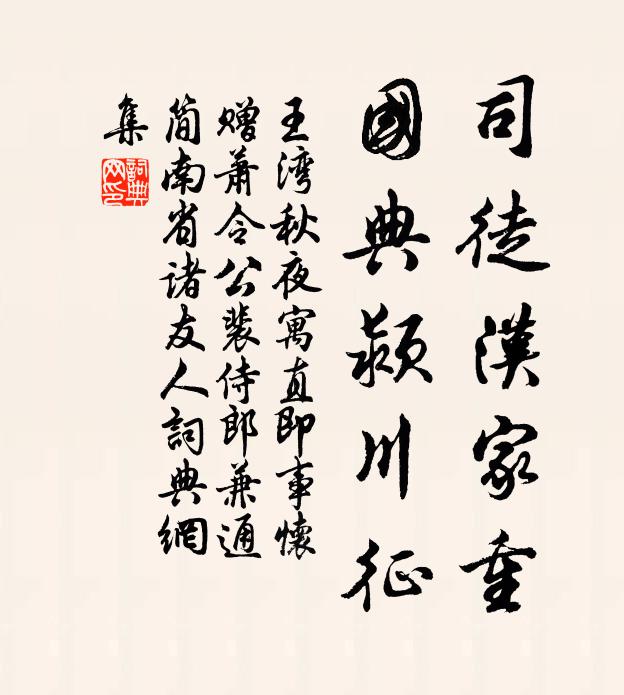 司徒漢家重
國典潁川征
王湾秋夜寓直即事懷
赠萧令公裴侍郎兼通
简南省诸友人詞典網
集
詞典網印